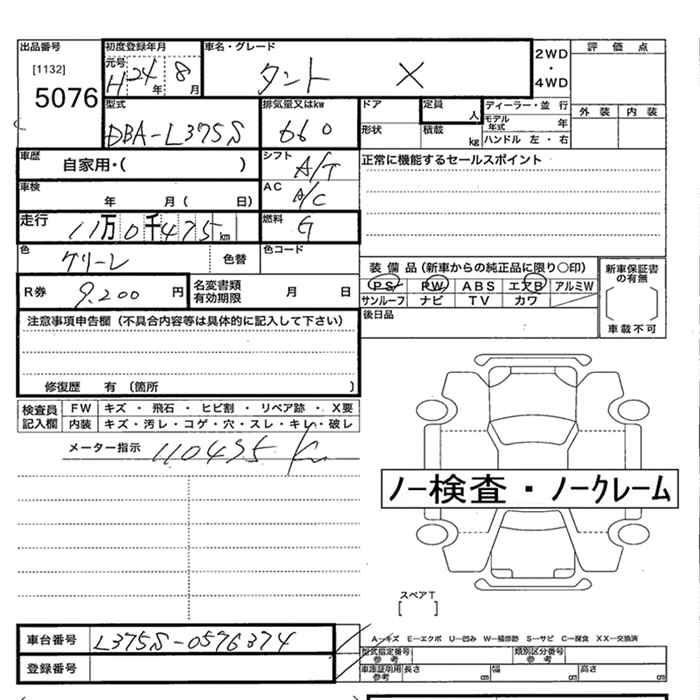 出品番号 初度登録年月 車名・グレード 2WD・4WD 評価点
[1132] 元号
5076 H24年 8月 タント X
外装 内装
型式 排気量又はkw ドア 定員 人 ディーラー・並行
DBA-L375S 660 形状 積載 kg モデル年式 年
ハンドル 左・右
車歴 自家用・( ) シフト A/T 正常に機能するセールスポイント
車検 年 月( 日) AC A/C
走行 11万0千475km 燃料 G
色 グリーン 色替 色コード
装備品(新車からの純正品に限り○印) 新車保証書の有無
R券 9.200円 名変書類有効期限 月 日 PS PW ABS エアB アルミW
サンルーフ ナビ TV カワ
車載不可
注意事項申告欄(不具合内容等は具体的に記入して下さい) 後日品
修復歴 有(箇所 )
検査員記入欄 FW キズ・飛石・ヒビ割・リペア跡・X要
内装 キズ・汚レ・コゲ・穴・スレ・キレ・破レ
メーター指示 110475 K
ノー検査・ノークレーム
スペアT
[ ]
車台番号 L375S-0576374 A-キズ E-エクボ U-凹み W-補修跡 S-サビ C-腐食 XX-交換済
型式指定番号 参考 類別区分番号 参考
登録番号 車庫証明用 参考 長さ cm 幅 cm 高さ cm